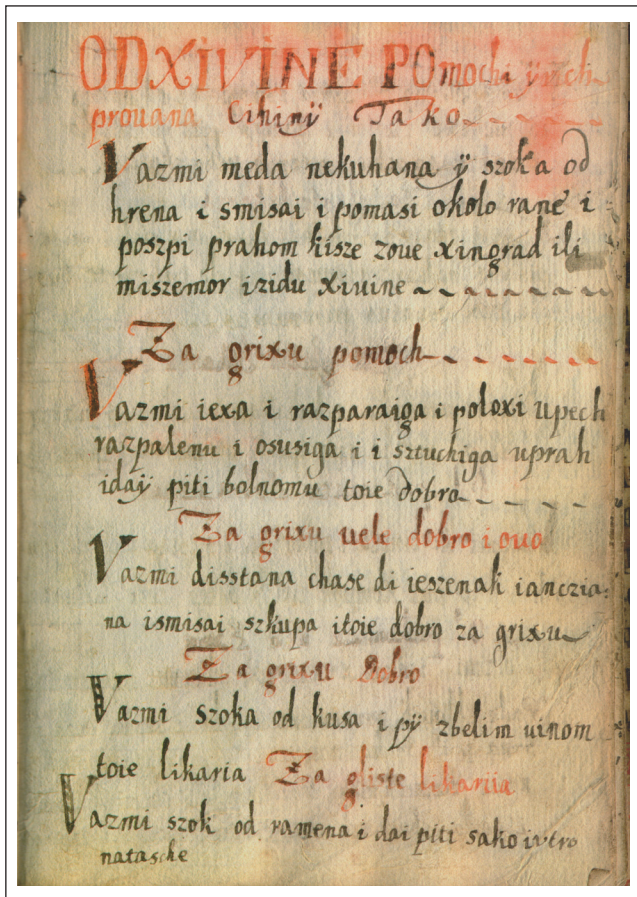 ODXIVINE POmochi ÿzich
prouana Cihinÿ Tako
Vazmi meda nekuhana ÿ szoka od
hrena i smisai i pomasi okolo rane i
poszpi prahom kisze zoue xingrad ili
miszemor izidu xiuine
Za grixu pomoch
Vazmi iexa i razparaiga i poloxi upech
razpalenu i osusiga i i sztuchiga uprah
idaÿ piti bolnomu toie dobro
Za grixu uele dobro i ouo
Vazmi disstana chase di ieszenak iànczia:
na ismisai szkupa itoie dobro za grixu
Za grixu Dobro
Vazmi szoka od kusa i pÿ zbelim uinom
toie likaria Za gliste likariia
Vazmi szok od ramena i dai piti sako iutro
natasche